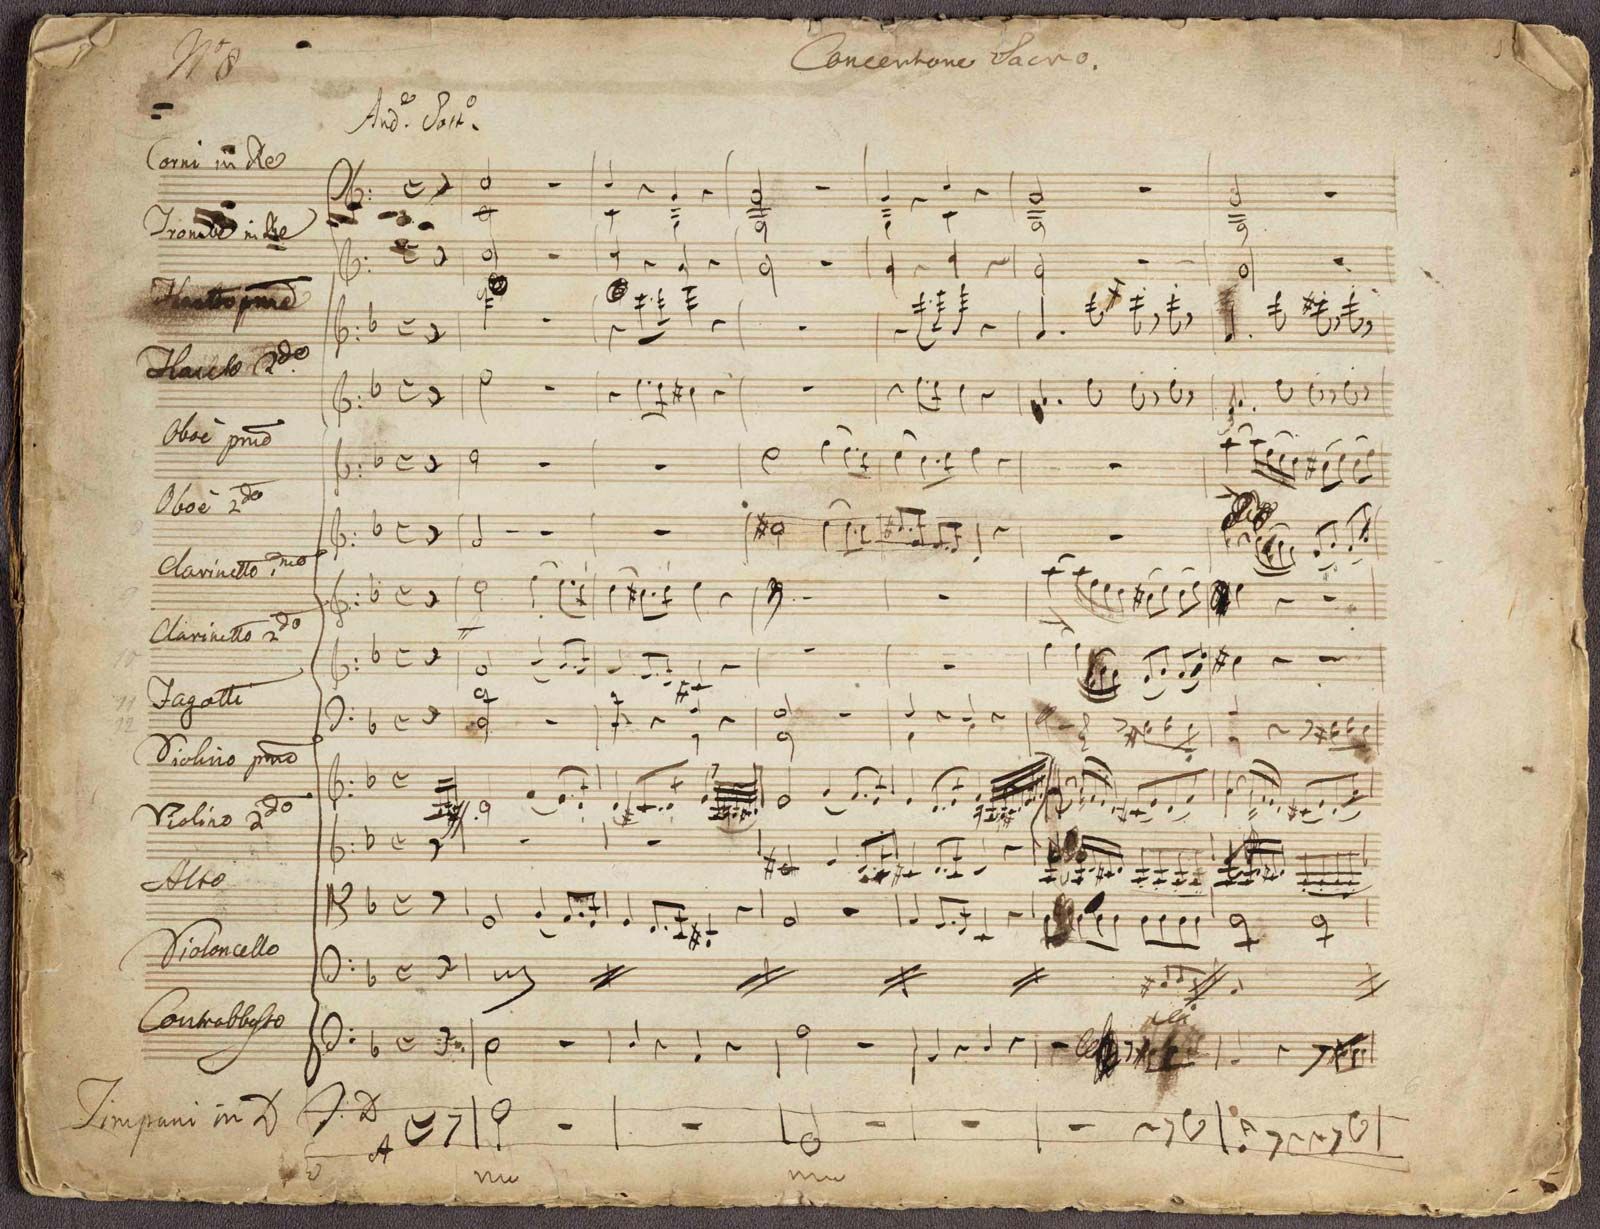 No 8
Concertone Sacro.
And.e Sost.o
Corni in Re
Trombe in Re
Flauto pmo
Flauto 2do
Oboè pmo
Oboè 2do
Clarinetto pmo
Clarinetto 2do
10
Fagotti
11
12
Violino pmo
Violino 2do
Alto
Violoncello
Contrabbasso
Timpani in D
D
A